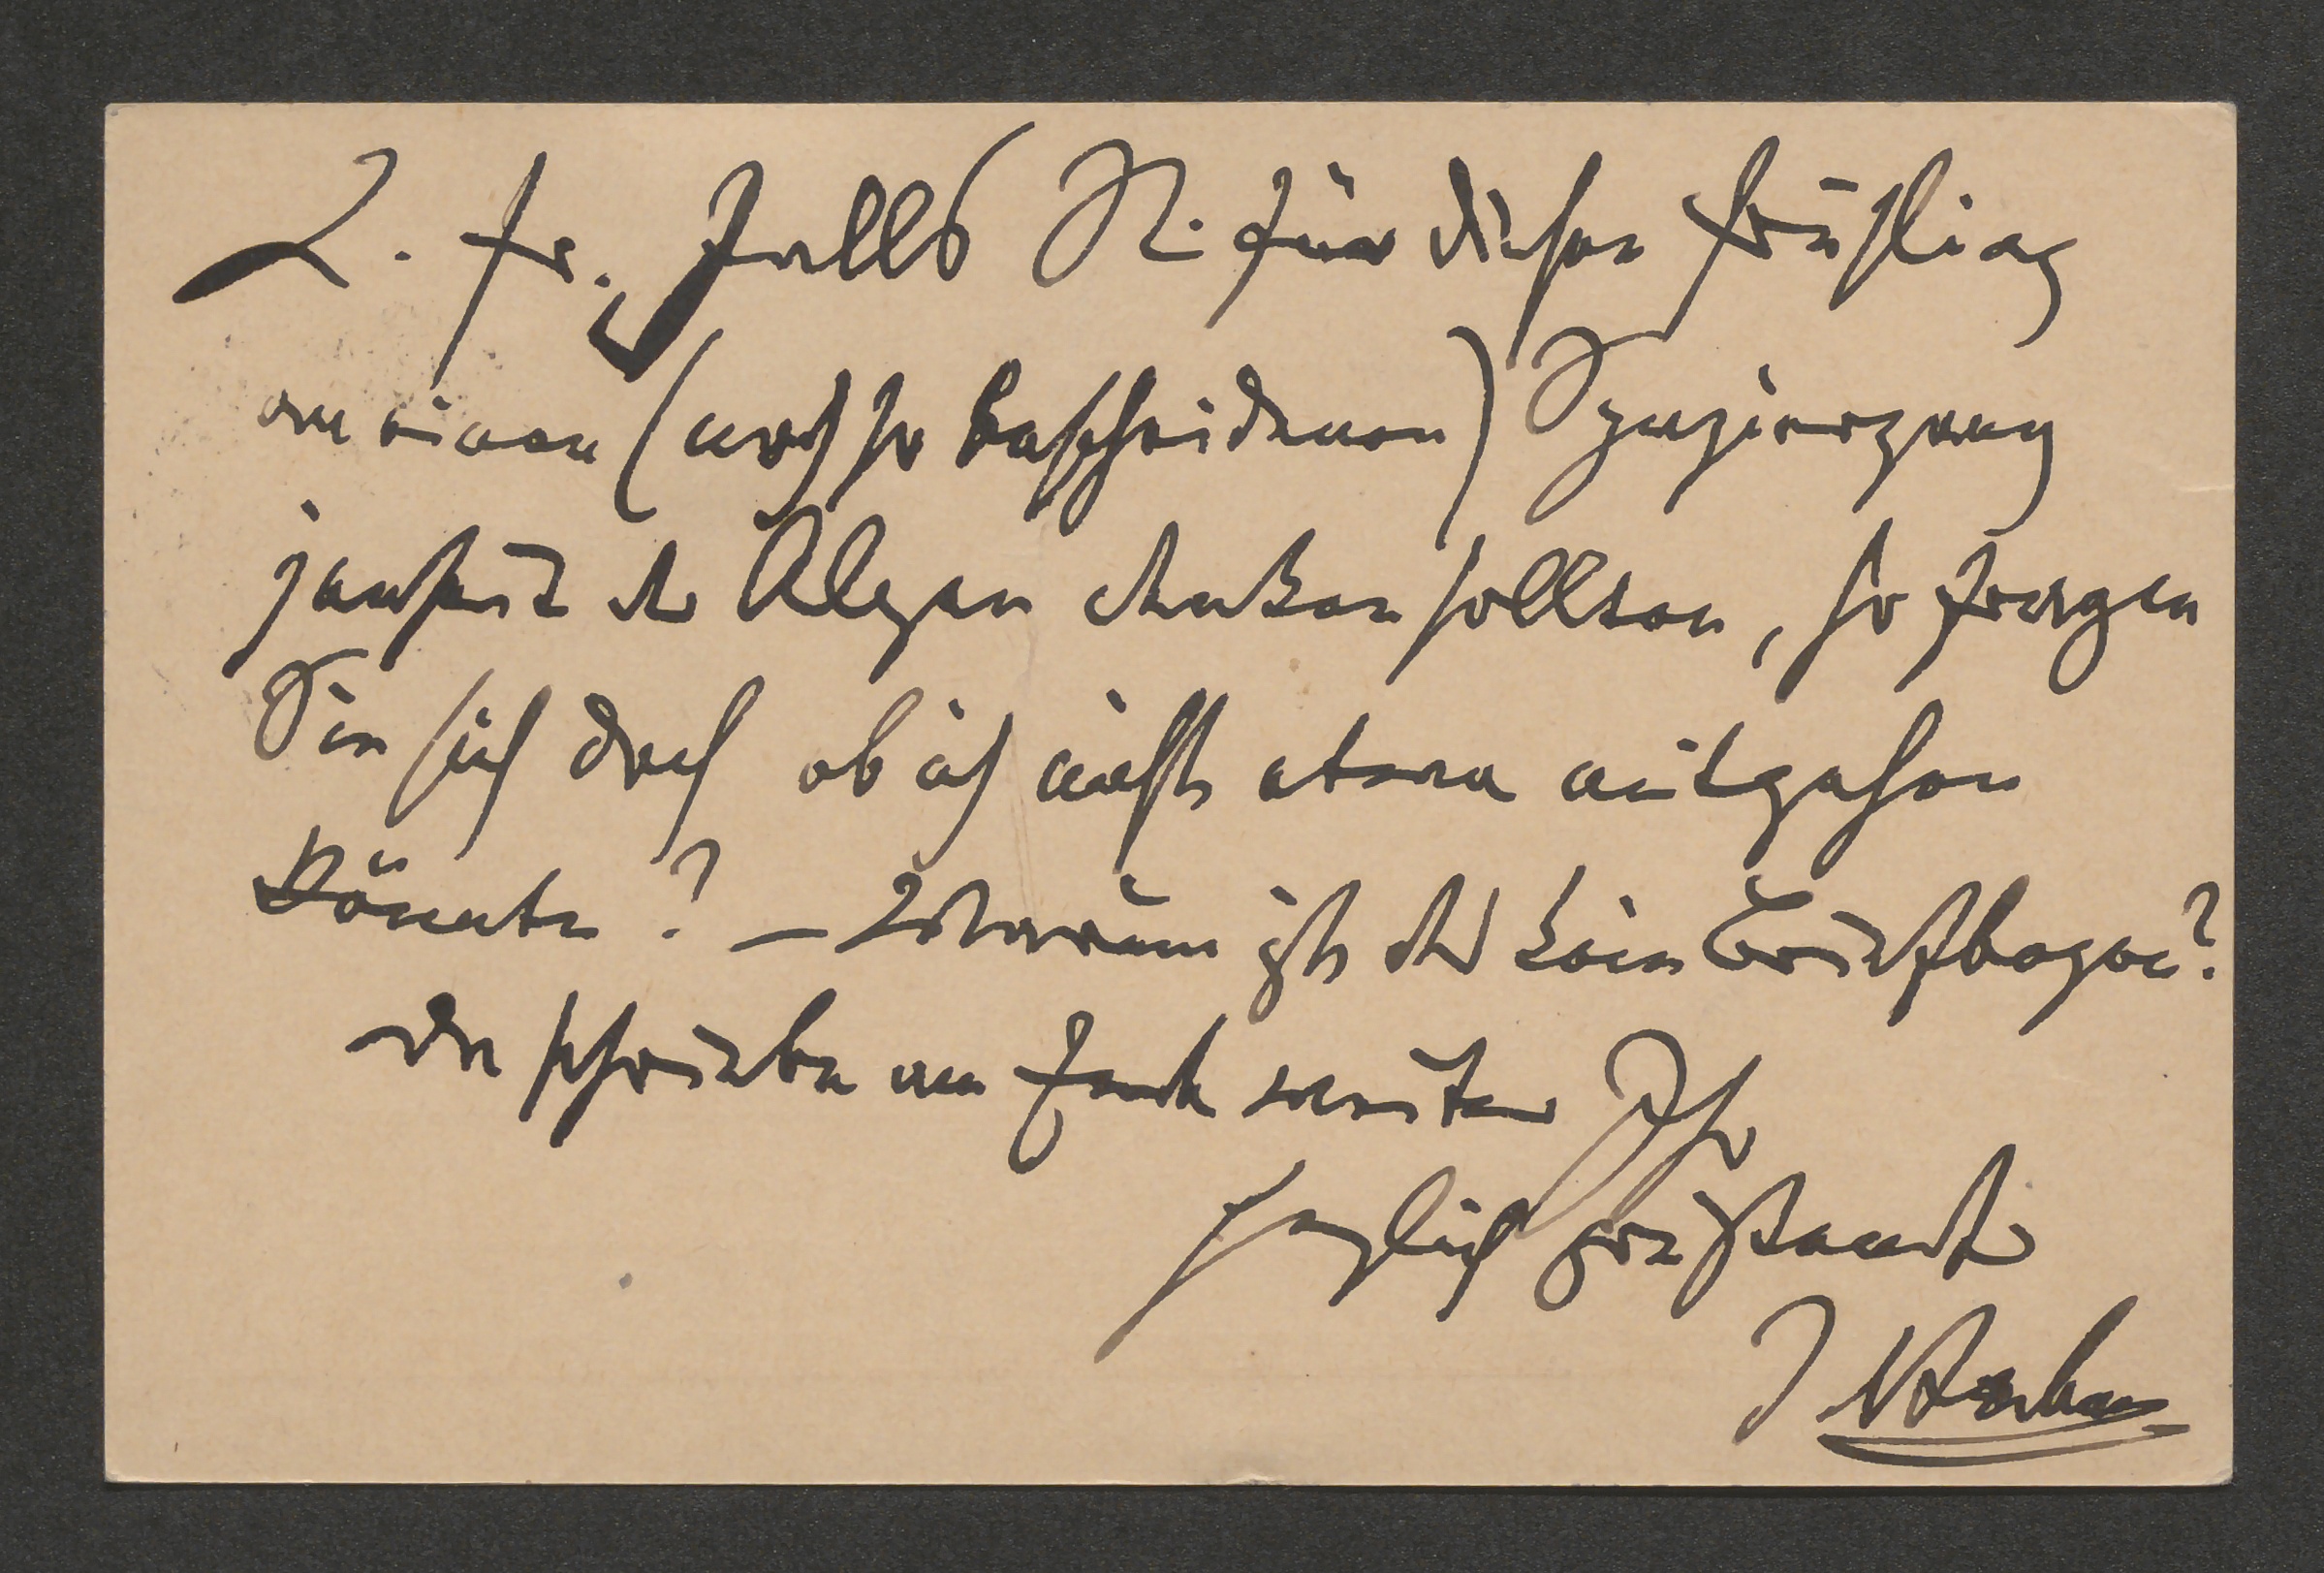 L. Fr. Falls S. für diesen Frühling
an einen (noch so bescheidenen) Spaziergang
jenseit der Alpen denken sollten, so fragen
Sie sich doch ob ich nicht etwa mitgehen
könnte? — Warum ist das kein Briefbogen?
da schriebe am Ende weiter Ihr
herzlich grüßender
J